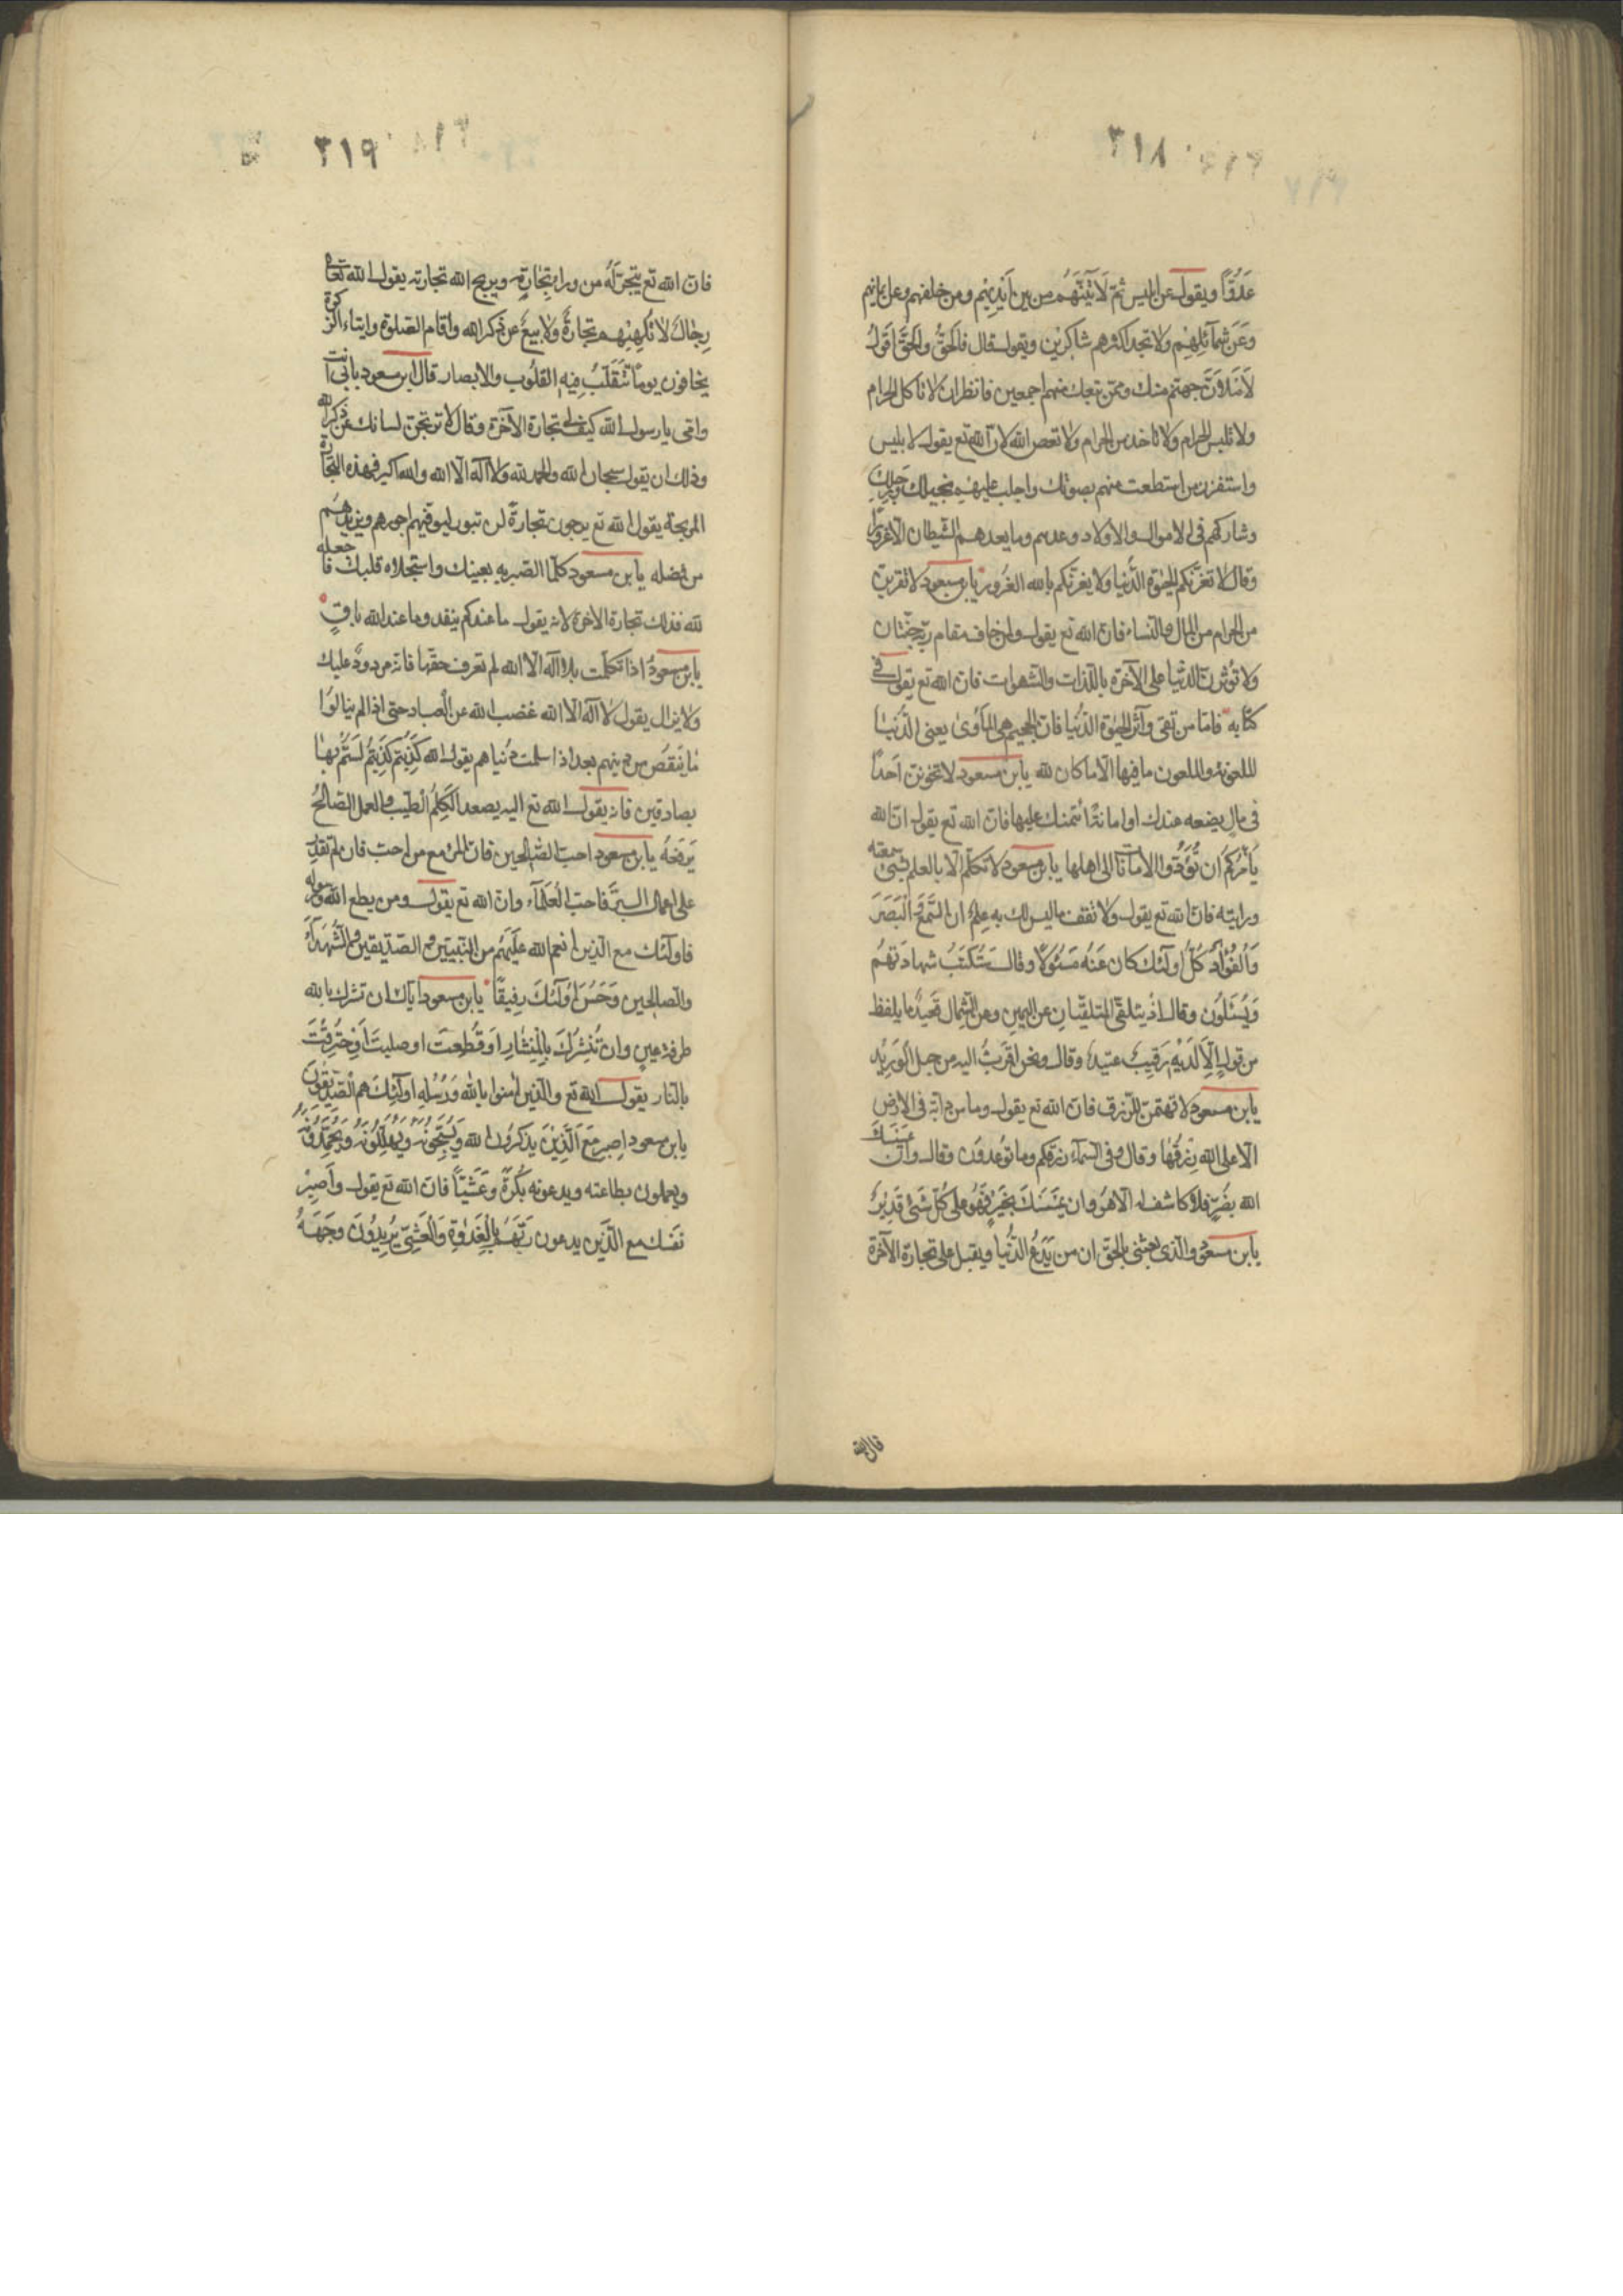 ٣١٨
عَدُوًّا ويقول عن ابليس ثمّ لَاٰتِيَنَّهُم من بين اَيْدِيْهِم ومن خلفهم وعن ايمانهم
وَعَنْ شَمآئِلِهِمْ ولا تجد اكثرهم شاكرين ويقول قال فالحَقُّ والحَقَّ اَقُولُ
لَاَمْلَأَنَّ جهنّم منك وممّن تبعك منهم اجمعين فانظر ان لا تاكل الحرام
ولا تلبس الحرام ولا تاخذ من الحرام ولا تعص الله لانّ الله تع يقول لابليس
واستفزز من استطعت منهم بصوتك واجلب عليهم بخيلك ورجلك
وشاركهم فى الاموال والاولاد وعدهم وما يعدهم الشّيطان الّا غرورًا
وقال لا تغرّنكم الحيٰوة الدّنيا ولا يغرّنكم بالله الغرور يابن مسعود لا تقربنّ
من الحرام من المال والنساء فانّ الله تع يقول ولمن خاف مقام ربّه جنّتان
ولا تؤثرنّ الدّنيا على الآخرة باللّذات والشهوات فانّ الله تع يقول فى
كتابه فامّا من طغى وآثر الحيٰوة الدّنيا فانّ الجحيم هى المأوى يعنى الدّنيا
الملعونة والملعون ما فيها الّا ما كان لله يابن مسعود لا تخونن احدًا
فى مال يضعه عندك او امانة ائتمنك عليها فانّ الله تع يقول انّ الله
يأمركم ان تؤدّوا الامانات الى اهلها يابن مسعود لا تكلّم الّا بالعلم بشىء سمعته
ورايته فانّ الله تع يقول ولا تقف ما ليس لك به علم ان السّمع والبَصَرَ
وَالفُؤَادَ كُلُّ اولئك كان عَنْهُ مَسْئُولًا وقال سَتُكْتَبُ شهادَتهُم
وَيُسْئَلُون وقال اذ يتلقّى المتلقّيان عن اليمين وعن الشّمال قعيد ما يلفظ
من قول اِلّا لَدَيْهِ رَقِيبٌ عتيد وقال ونحن اقرَبُ اليه من حبل الوَرِيْد
يابن مسعود لا تهتمنّ للرّزق فانّ الله تع يقول وما من دابّة فى الارض
الّا على الله رِزْقُهٰا وقال وفى السّمآء رزقكم وما تُوعَدون وقال وان يَمْسَسْكَ
الله بضُرٍّ فلا كاشف له الّا هو وان يَمْسَسْكَ بخَيْرٍ فَهُو على كُلّ شَىْءٍ قَدِيْرٌ
يابن مسعود والّذى بعثنى بالحقّ ان من يَدَعُ الدُّنْيا ويقبل على تجارة الآخرة
فانّ الله
٣١٩
فانّ الله تع يتّجر لَهُ من وراء تجارته ويربح الله تجارته يقول الله تعالى
رِجٰالٌ لا تُلْهِيْهِم تجارةٌ ولا بيعٌ عن ذكر الله واقام الصّلوة وايتاء الزكوة
يخافون يومًا تَتَقَلَّبُ فِيهِ القلُوب والابصار قال ابن مسعود بابى انت
وامّى يا رسول الله كيف لى تجارة الآخرة وقال لا تريحنّ لسانك عن ذكر الله
وذلك ان يقول سبحان الله والحمد لله ولا اله الّا الله والله اكبر فهذه التجارة
المربحة يقول الله تع يرجون تجارةً لن تبور ليوفّيهم اجورهم ويزيدهُم
من فضله يابن مسعود كلّما ابصرته بعينك واستحلاه قلبك فاجعله
لله فذلك تجارة الآخرة لانّه يقول ما عندكم ينفد وما عند الله باقٍ
يابن مسعود اذا تكلّمت بلا اله الّا الله لم تعرف حقّها فانّه مردودٌ عليك
ولا يزال يقول لا اله الّا الله غضب الله عن العباد حتى اذا لم ينالوا
مٰا ينقص من دينهم بعد اذا سلمت دُنياهم يقول الله كَذِبْتم كَذِبْتُم لَسْتُم بهٰا
بصادقين فانّه يقول الله تع اليه يصعد الكَلِمُ الطّيّب والعمل الصّالحُ
يَرْفَعُهُ يابن مسعود احبّ الصّالحين فانّ المرء مع من احبّ فان لم تقدر
على اعمال البرّ فاحبّ العلَمآء وانّ الله تع يقول ومن يطع الله ورسوله
فاولئك مع الّذين انعم الله عَلَيْهِم من النّبيّين والصّدّيقين والشّهدآء
والصالحين وَحَسُنَ اُولئكَ رفيقًا يابن مسعود ايّاك ان تشرك بالله
طرفة عين وان نُشِرْتَ بالمِنْشارِ او قُطِعتَ او صلبتَ او حُرِقْتَ
بالنّار يقول الله تع والّذين اٰمنوا بالله وَرُسُلِهِ اولئكَ هم الصّدّيقونَ
يابن مسعود اِصبر مَعَ الَّذِيْنَ يذكرُون الله وَيُسَبِّحُونَهُ وَيُهَلِّلُونَهُ وَيَحْمَدُونَهُ
ويعملون بطاعته ويدعونه بُكْرَةً وَعَشِيّاً فانّ الله تع يقول واَصبِرْ
نَفسَك مع الّذين يدعون رَبَّهُم بِالغَدٰوةِ وَالْعَشِىِّ يُرِيدُونَ وجهَهُ